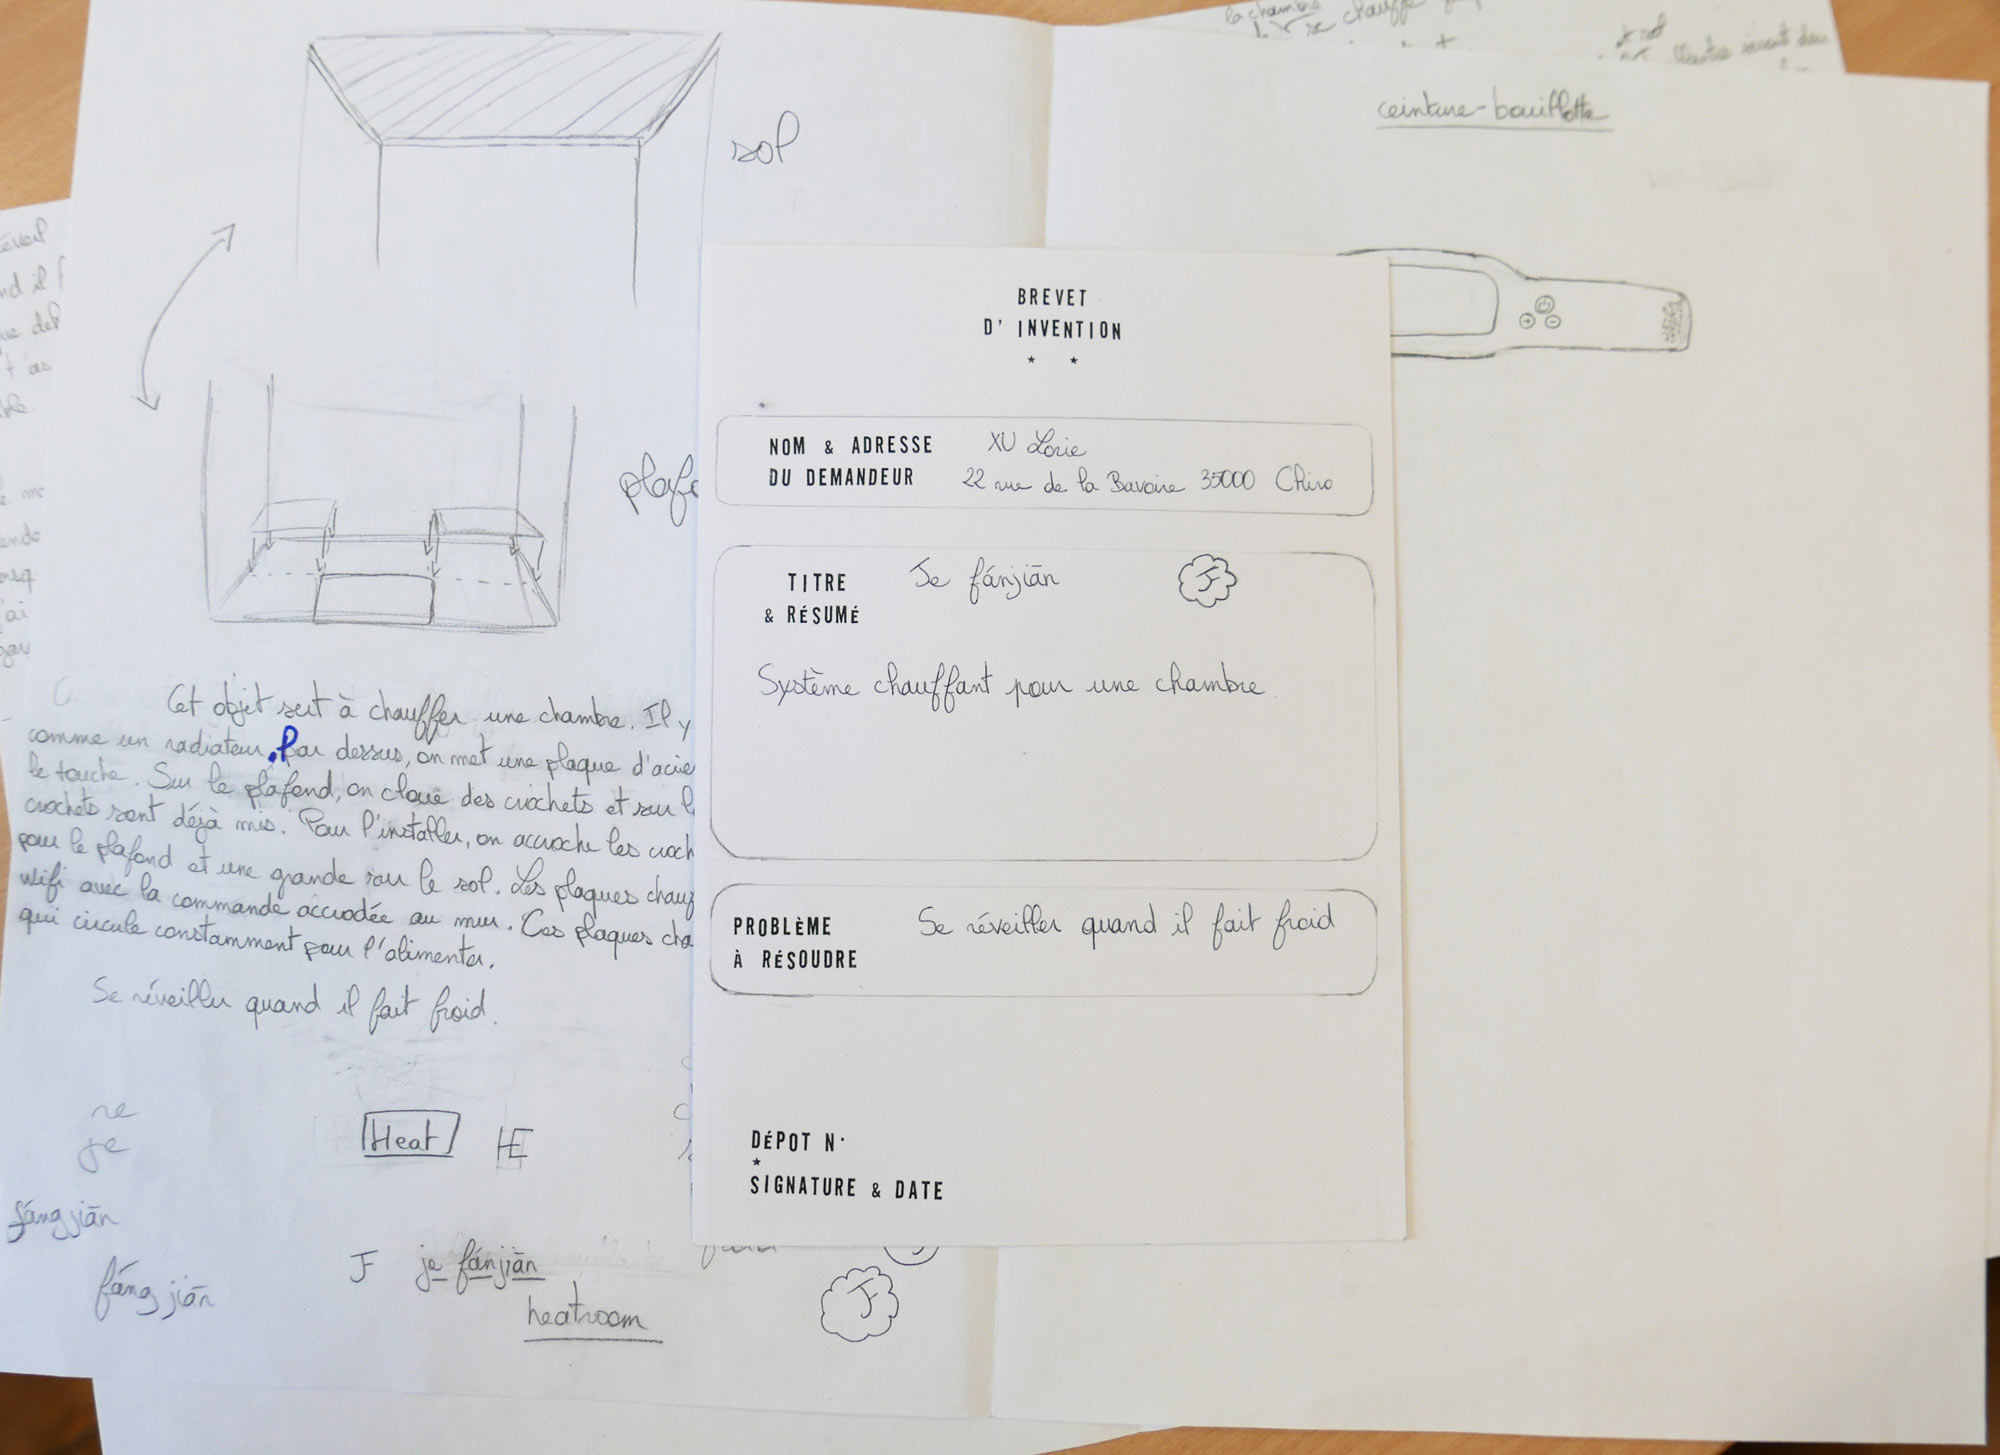 la chambre
se chauffe
ceinture-bouillotte
sol
plafo
BREVET
D' INVENTION
NOM & ADRESSE
DU DEMANDEUR
XU Lorie
22 rue de la Bavoire 35000 Chiro
TITRE
& RÉSUMÉ
Je fánjiān
J
Système chauffant pour une chambre.
PROBLÈME
À RÉSOUDRE
Se réveiller quand il fait froid
DÉPOT N·
SIGNATURE & DATE
Cet objet sert à chauffer une chambre. Il y
comme un radiateur. Par dessus, on met une plaque d'acie
le touche. Sur le plafond, on cloue des crochets et sur l
crochets sont déjà mis. Pour l'installer, on accroche les croch
pour le plafond et une grande sur le sol. Les plaques chauf
wifi avec la commande accrochée au mur. Ces plaques cha
qui circule constamment pour l'alimenter.
Se réveiller quand il fait froid.
re
je
Heat
HE
fángjiān
fáng jiān
J je fánjiān
heatroom
J